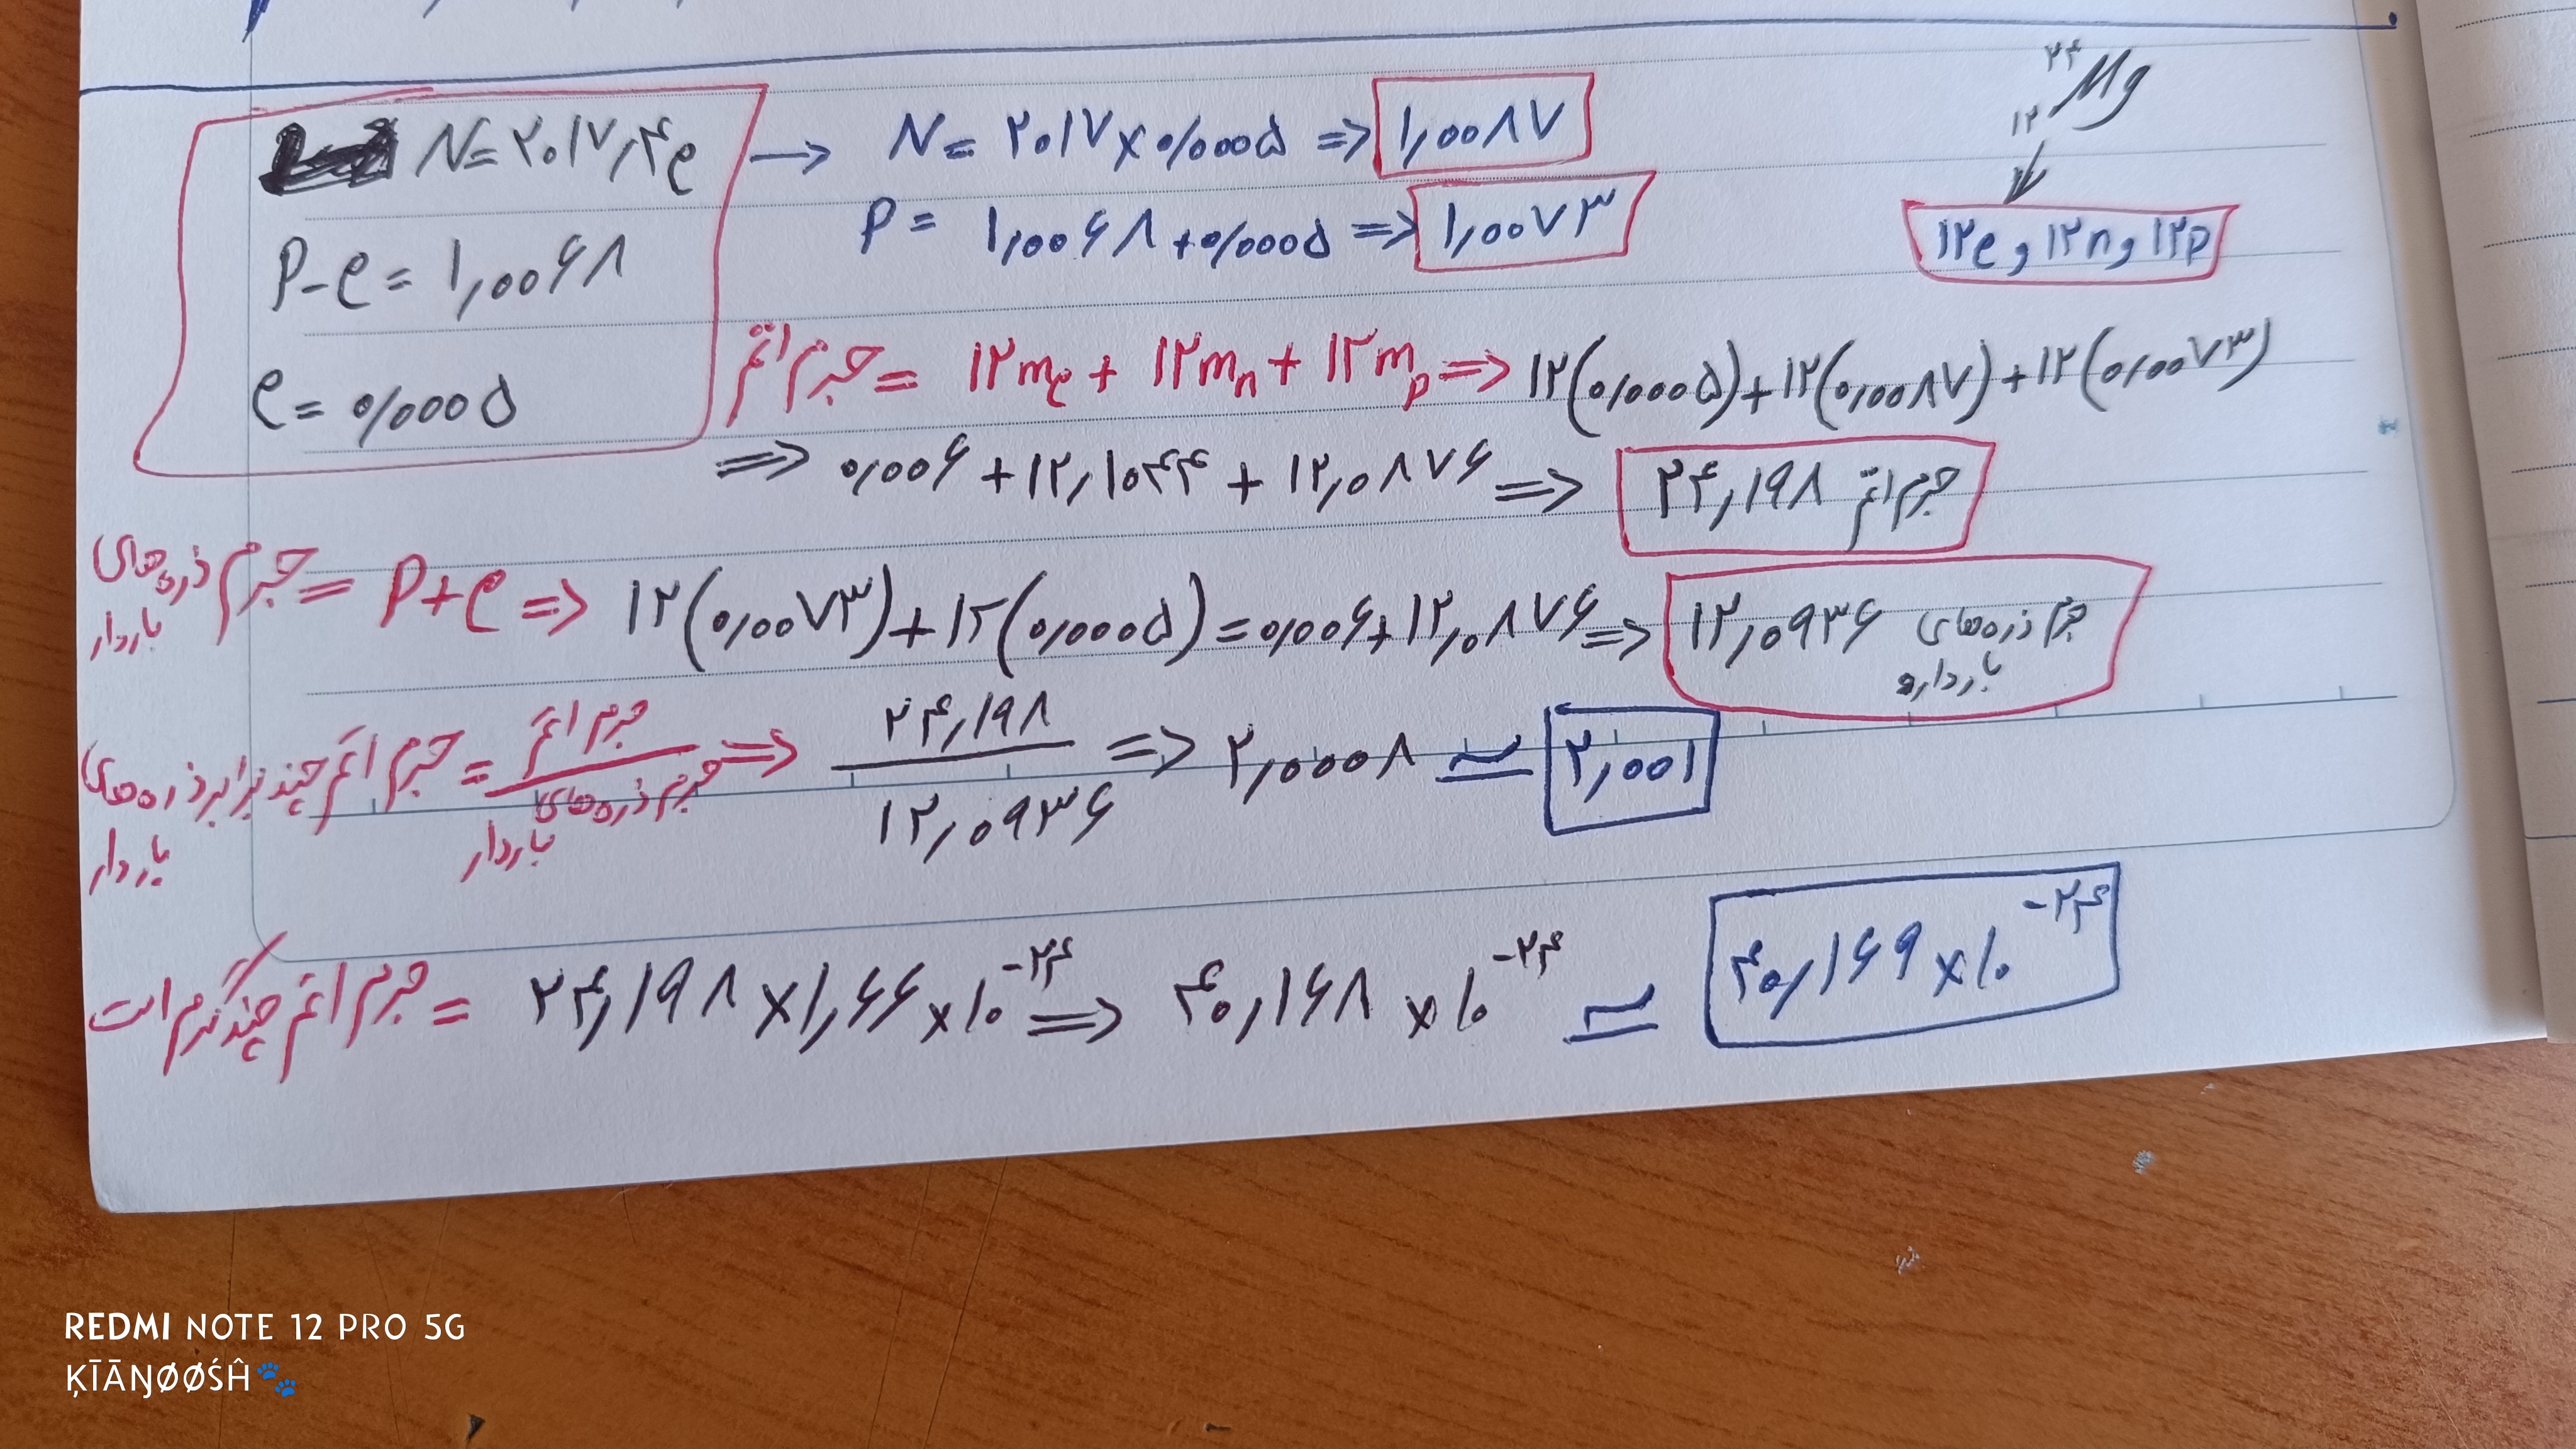 N = ۲۰۱۷٫۴e → N = ۲۰۱۷ × ۰٫۰۰۰۵ ⇒ ۱٫۰۰۸۷
²⁴₁₂Mg
P - e = ۱٫۰۰۶۸
P = ۱٫۰۰۶۸ + ۰٫۰۰۰۵ ⇒ ۱٫۰۰۷۳
۱۲e و ۱۲n و ۱۲p
e = ۰٫۰۰۰۵
جرم اتم = ۱۲mₑ + ۱۲mₙ + ۱۲mₚ ⇒ ۱۲(۰٫۰۰۰۵) + ۱۲(۰٫۰۰۸۷) + ۱۲(۰٫۰۰۷۳)
⇒ ۰٫۰۰۶ + ۱۲٫۱۰۴۴ + ۱۲٫۰۸۷۶ ⇒ ۲۴٫۱۹۸ جرم اتم
جرم ذره‌های باردار = P + e ⇒ ۱۲(۰٫۰۰۷۳) + ۱۲(۰٫۰۰۰۵) = ۰٫۰۰۶ + ۱۲٫۰۸۷۶ ⇒ ۱۲٫۰۹۳۶ جرم ذره‌های باردار
جرم اتم چند برابر ذره‌های باردار = جرم اتم / جرم ذره‌های باردار ⇒ ۲۴٫۱۹۸ / ۱۲٫۰۹۳۶ ⇒ ۲٫۰۰۰۸ ≃ ۲٫۰۰۱
جرم اتم چند گرم است = ۲۴٫۱۹۸ × ۱٫۶۶ × ۱۰⁻²⁴ ⇒ ۴۰٫۱۶۸ × ۱۰⁻²⁴ ≃ ۴۰٫۱۶۹ × ۱۰⁻²⁴
REDMI NOTE 12 PRO 5G
ĶĪĀŊØØŚĤ🐾